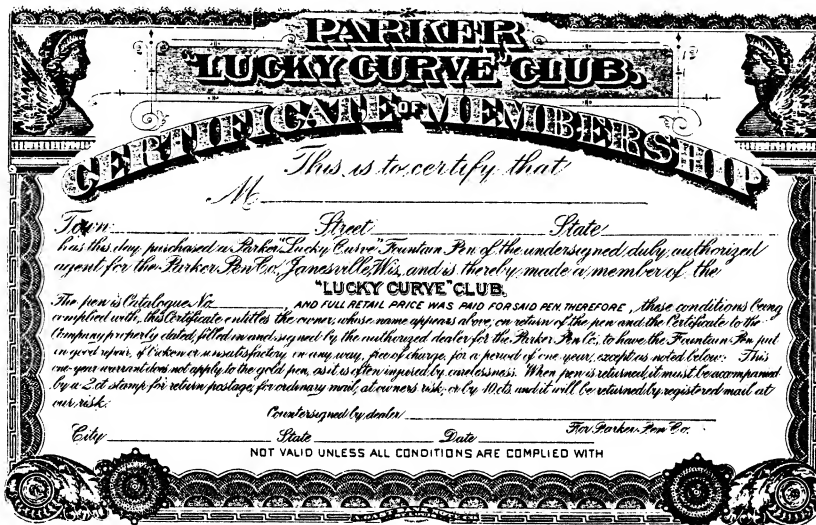 PARKER
"LUCKY CURVE" CLUB.
CERTIFICATE OF MEMBERSHIP
This is to certify that
M
Town Street State
has this day purchased a Parker "Lucky Curve" Fountain Pen of the undersigned duly authorized
agent for the Parker Pen Co., Janesville, Wis., and is thereby made a member of the
"LUCKY CURVE" CLUB.
The pen is Catalogue No. , AND FULL RETAIL PRICE WAS PAID FOR SAID PEN. THEREFORE, these conditions being
complied with, this Certificate entitles the owner, whose name appears above, on return of the pen and the Certificate to the
Company, properly dated, filled in and signed by the authorized dealer for the Parker Pen Co., to have the Fountain Pen put
in good repair, if broken or unsatisfactory in any way, free of charge, for a period of one year, except as noted below: This
one-year warrant does not apply to the gold pen, as it is often injured by carelessness. When pen is returned, it must be accompanied
by a 2 ct stamp for return postage, for ordinary mail, at owners risk, or by 10 cts. and it will be returned by registered mail at
our risk.
Countersigned by dealer
For Parker Pen Co.
City State Date
NOT VALID UNLESS ALL CONDITIONS ARE COMPLIED WITH